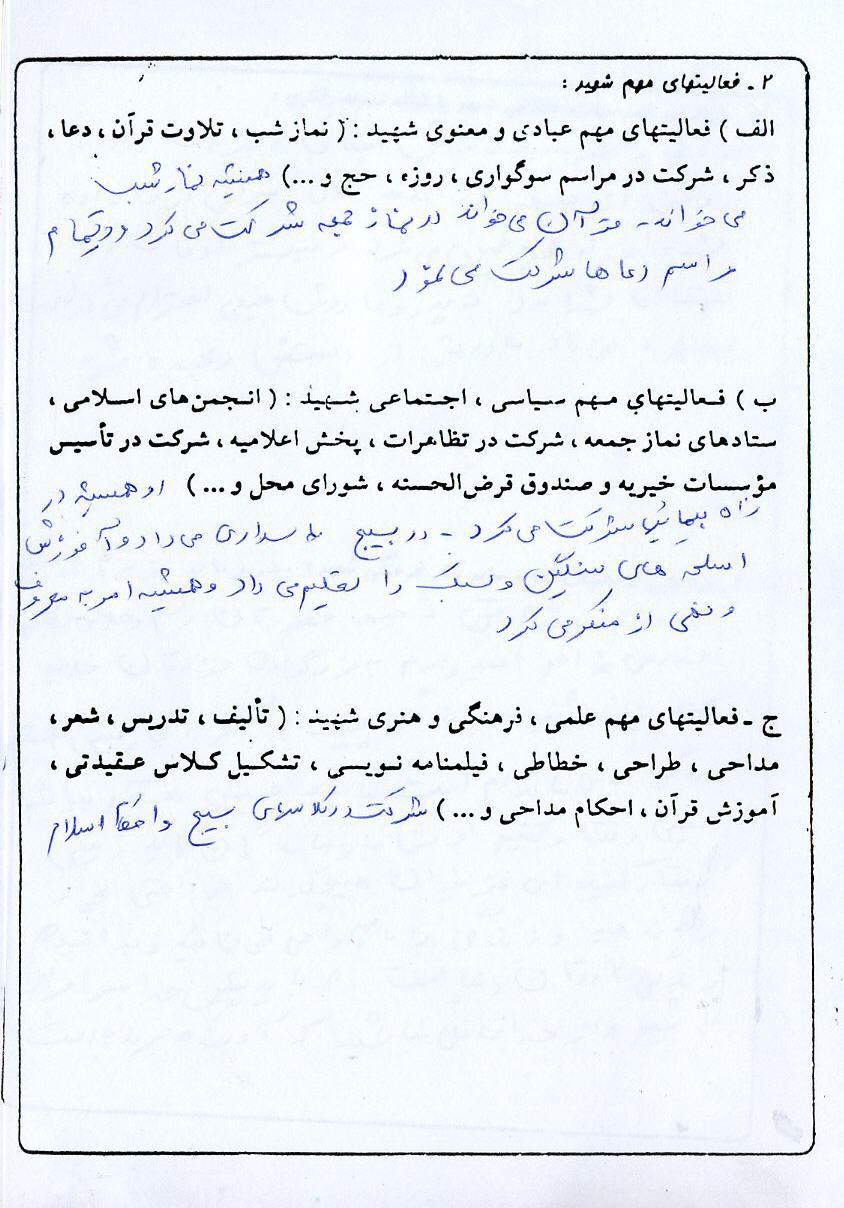 ۲ ـ فعالیتهای مهم شهید :
الف ) فعالیتهای مهم عبادی و معنوی شهید : ( نماز شب ، تلاوت قرآن ، دعا ،
ذکر ، شرکت در مراسم سوگواری ، روزه ، حج و ...) همیشه نماز شب
می خواند - قرآن می خواند در نماز جمعه شرکت می کرد و در تمام
مراسم دعا ها شرکت می نمود
ب ) فعالیتهای مهم سیاسی ، اجتماعی شهید : ( انجمن‌های اسلامی ،
ستادهای نماز جمعه ، شرکت در تظاهرات ، پخش اعلامیه ، شرکت در تأسیس
مؤسسات خیریه و صندوق قرض‌الحسنه ، شورای محل و ... ) او همیشه در
راه پیمائی شرکت می کرد - در بسیج پاسداری می داد و آموزش
اسلحه های سنگین و سبک را تعلیم می داد و همیشه امر به معروف
و نهی از منکر می کرد
ج ـ فعالیتهای مهم علمی ، فرهنگی و هنری شهید : ( تألیف ، تدریس ، شعر ،
مداحی ، طراحی ، خطاطی ، فیلمنامه نویسی ، تشکیل کلاس عقیدتی ،
آموزش قرآن ، احکام مداحی و ... ) شرکت در کلاسهای بسیج و احکام اسلام